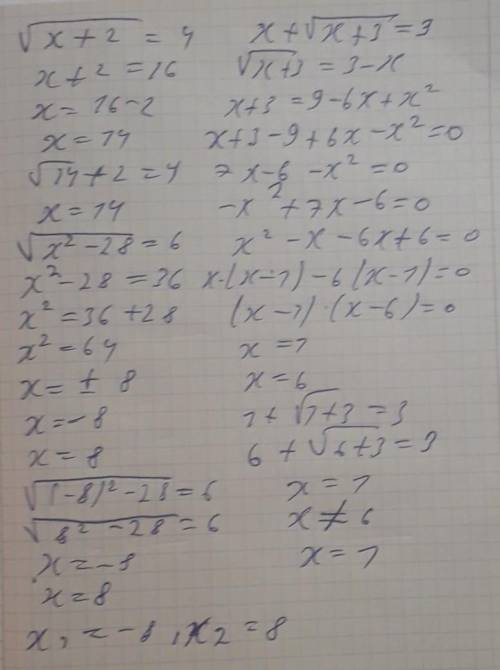 √x+2 = 4
x+2 = 16
x = 16-2
x = 14
√14+2 = 4
x = 14
√x²-28 = 6
x²-28 = 36
x² = 36+28
x² = 64
x = ± 8
x = -8
x = 8
√(-8)²-28 = 6
√8²-28 = 6
x = -8
x = 8
x₁ = -8, x₂ = 8
x+√x+3 = 3
√x+3 = 3-x
x+3 = 9-6x+x²
x+3-9+6x-x² = 0
7x-6-x² = 0
-x²+7x-6 = 0
x²-x-6x+6 = 0
x·(x-1)-6(x-1) = 0
(x-1)·(x-6) = 0
x = 1
x = 6
1+√1+3 = 3
6+√6+3 = 3
x = 1
x ≠ 6
x = 1